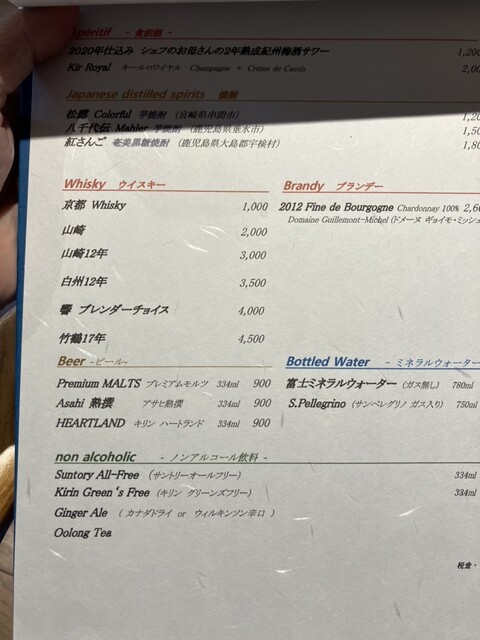 Apéritif - 食前酒 -
2020年仕込み シェフのお母さんの2年熟成紀州梅酒サワー 1,200
Kir Royal キールロワイヤル Champagne + Crème de Cassis 2,00
Japanese distilled spirits 焼酎
松露 Colorful 芋焼酎 (宮崎県串間市) 1,20
八千代伝 Mahler 芋焼酎 (鹿児島県垂水市) 1,50
紅さんご 奄美黒糖焼酎 (鹿児島県大島郡宇検村) 1,80
Whisky ウイスキー
京都 Whisky 1,000
山崎 2,000
山崎12年 3,000
白州12年 3,500
響 ブレンダーチョイス 4,000
竹鶴17年 4,500
Brandy ブランデー
2012 Fine de Bourgogne Chardonnay 100% 2,6
Domaine Guillemont-Michel (ドメーヌ ギョイモ・ミッシュ
Beer -ビール-
Premium MALTS プレミアムモルツ 334ml 900
Asahi 熟撰 アサヒ熟撰 334ml 900
HEARTLAND キリン ハートランド 334ml 900
Bottled Water - ミネラルウォーター
富士ミネラルウォーター (ガス無し) 780ml
S.Pellegrino (サンペレグリノ ガス入り) 750ml
non alcoholic - ノンアルコール飲料 -
Suntory All-Free (サントリーオールフリー) 334ml
Kirin Green's Free (キリン グリーンズフリー) 334ml
Ginger Ale ( カナダドライ or ウィルキンソン辛口 )
Oolong Tea
税金・